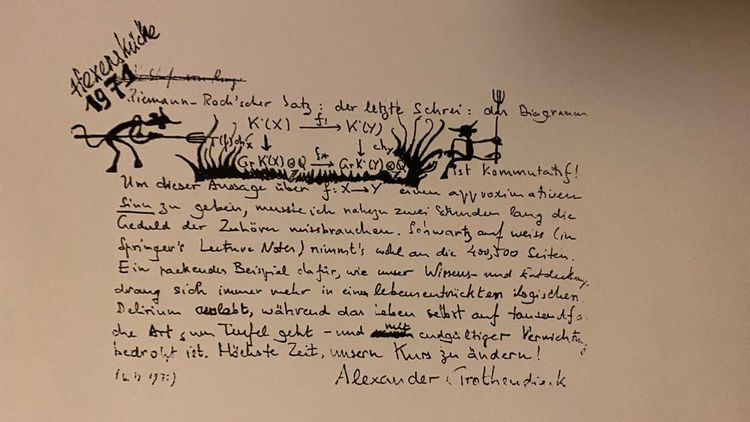 Hexenküche
1971
Riemann-Roch'scher Satz: der letzte Schrei: das Diagramm
K˙(X) f! K˙(Y)
T(f)chX chY
Gr K˙(X)⊗Q f* Gr K˙(Y)⊗Q
Z Z
ist kommutatif!
Um dieser Aussage über f: X→Y einen approximativen
Sinn zu geben, musste ich nahezu zwei Stunden lang die
Geduld der Zuhörer missbrauchen. Schwartz auf weiss (in
Springer's Lecture Notes) nimmt's wohl an die 400, 500 Seiten.
Ein packendes Beispiel dafür, wie unser Wissens- und Entdeckungs
drang sich immer mehr in einen lebensentrückten logischen
Delirium auslebt, während das Leben selbst auf tausendfa
che Art zum Teufel geht - und mit endgültiger Vernichtung
bedroht ist. Höchste Zeit, unsern Kurs zu ändern!
Alexander Grothendieck